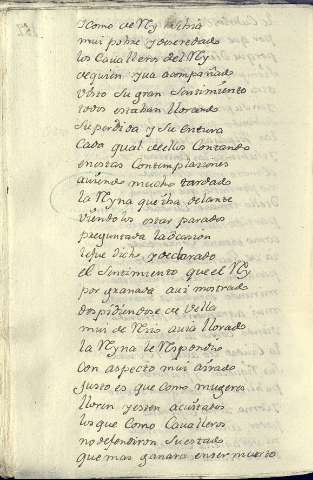 Como de Ry
mui pobre y deseredado
los Caualleros del Ry
de quien yua acompañado
visto Su gran Sentimiento
todos estaban llorando
Su perdida y Su
Cada qual dellos Contando
en estas Contemplaciones
auiendo mucho tardado
la Ryna que iba delante
viendolos estar parados
preguntada la ocasion
le fue dicho y declarado
el Sentimiento que el Ry
por granada aui mostrado
despidiendose de ella
mui de Ricio auia llorado
la Ryna le Respondio
con aspecto mui airado
Justo es que Como mugeres
lloren y esten acuitados
los que Como Caualleros
no defendiron Su estado
que mas ganara en ser muerto